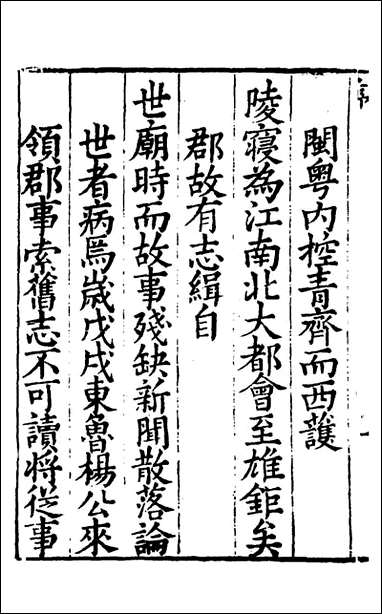 閩粵內控青齊而西護
陵寢為江南北大都會至雄鉅矣
郡故有志緝自
世廟時而故事殘缺新聞散落論
世者病焉歲戊戌東魯楊公來
領郡事索舊志不可讀將從事